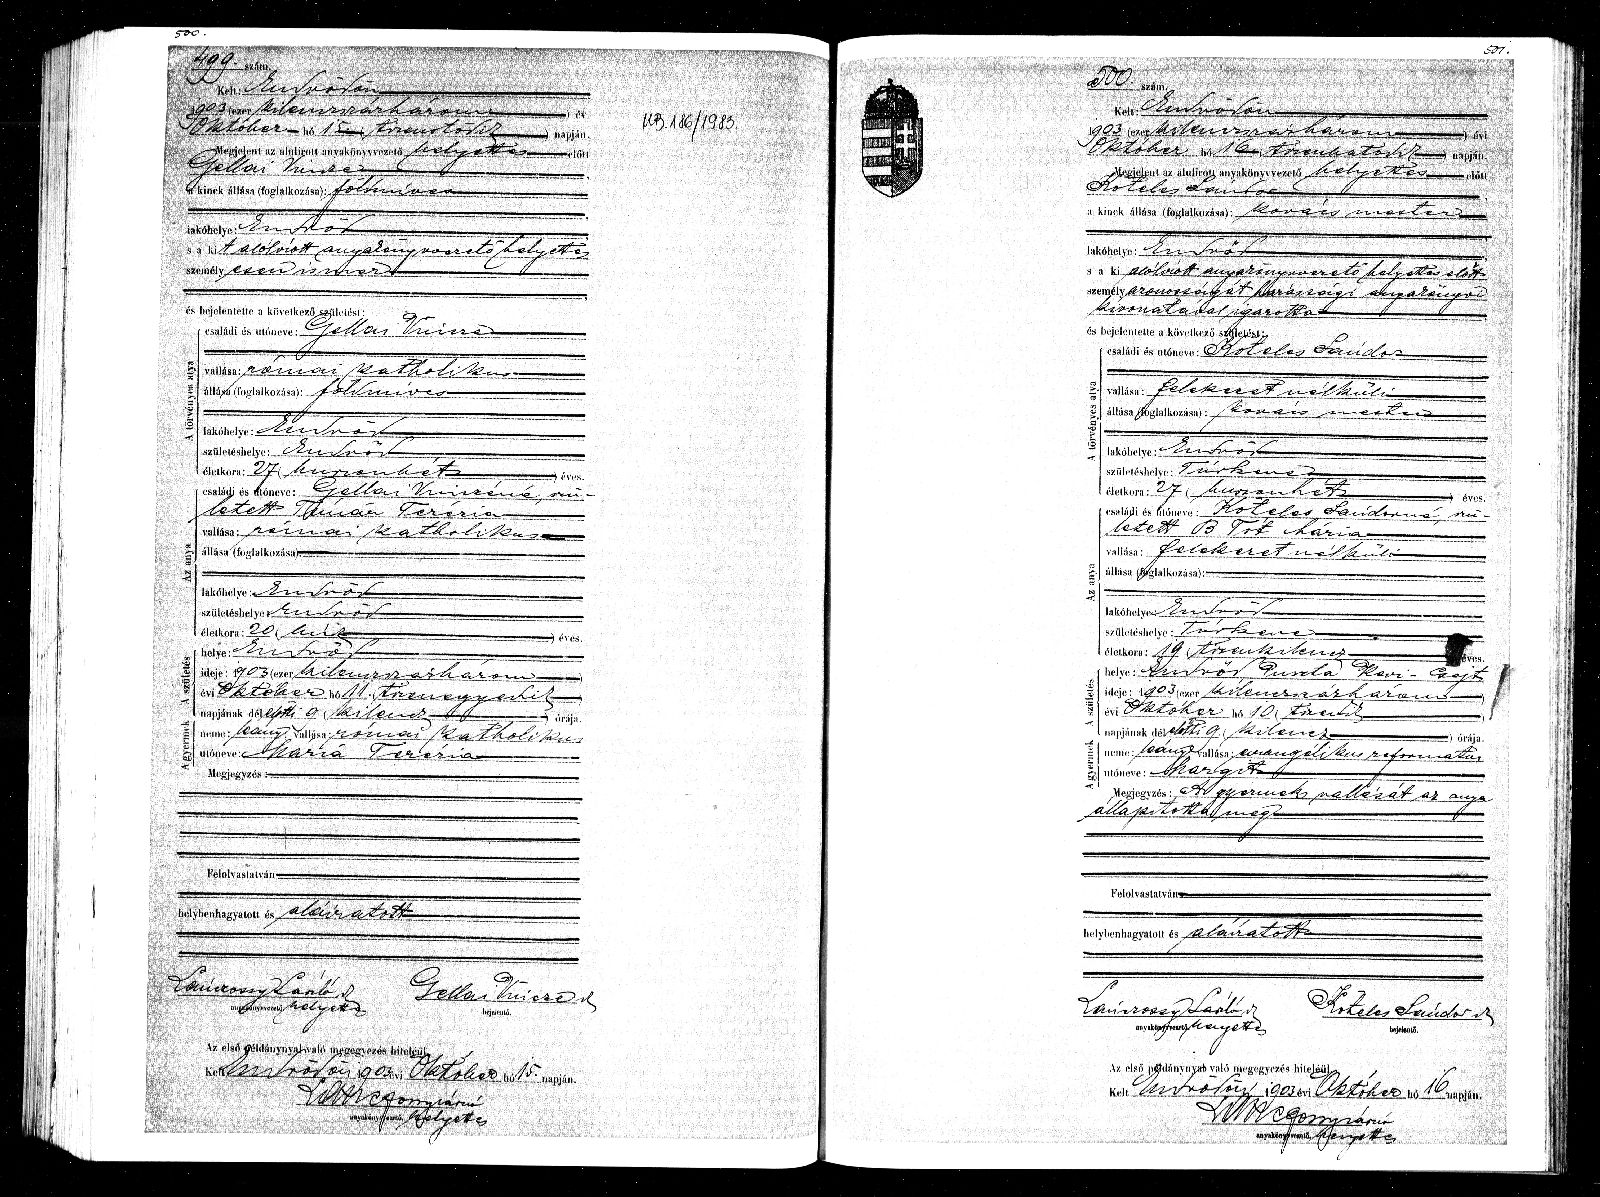 500.
499. szám.
Kelt: Endrődön
1903 (ezer kilenczszázhárom) évi
Október hó 15 (tizenötödik) napján.
Megjelent az alulirott anyakönyvvezető helyettes előtt
Gellai Vincze
a kinek állása (foglalkozása): földmíves
lakóhelye: Endrőd
s a kit alólírott anyakönyvvezető helyettes
személyesen ismer
és bejelentette a következő születést:
A törvényes atya
családi és utóneve: Gellai Vincze
vallása: római katholikus
állása (foglalkozása): földmíves
lakóhelye: Endrőd
születéshelye: Endrőd
életkora: 27 (huszonhét) éves.
Az anya
családi és utóneve: Gellai Vinczéné, szü-
letett Tímár Terézia
vallása: római katholikus
állása (foglalkozása):
lakóhelye: Endrőd
születéshelye: Endrőd
életkora: 20 (húsz) éves.
A születés
helye: Endrőd
ideje: 1903 (ezer kilenczszázhárom)
évi Október hó 11. (tizenegyedik)
napjának délelőtti 9 (kilencz) órája.
A gyermek
neme: leány vallása: római katholikus
utóneve: Mária Terézia
Megjegyzés:
Felolvastatván
helybenhagyatott és aláíratott
László
anyakönyvvezető helyettes
Gellai Vincze
bejelentő.
Az első példánynyal való megegyezés hiteléül
Kelt Endrődön, 1903 évi Október hó 15. napján.
anyakönyvvezető, helyettes
KB.186/1983.
501.
500. szám.
Kelt: Endrődön
1903 (ezer kilenczszázhárom) évi
Október hó 16 (tizenhatodik) napján.
Megjelent az alulirott anyakönyvvezető helyettes előtt
Köteles Sándor
a kinek állása (foglalkozása): kovács mester
lakóhelye: Endrőd
s a ki alólírott anyakönyvvezető helyettes előtt
személyazonosságát házassági anyakönyvi
kivonatával igazolta
és bejelentette a következő születést:
A törvényes atya
családi és utóneve: Köteles Sándor
vallása: felekezet nélküli
állása (foglalkozása): kovács mester
lakóhelye: Endrőd
születéshelye: Túrkeve
életkora: 27 (huszonhét) éves.
Az anya
családi és utóneve: Köteles Sándorné, szü-
letett B Tót Mária
vallása: felekezet nélküli
állása (foglalkozása):
lakóhelye: Endrőd
születéshelye: Túrkeve
életkora: 19 (tizenkilencz) éves.
A születés
helye: Endrőd Puszta Csejt
ideje: 1903 (ezer kilenczszázhárom)
évi Október hó 10 (tizedik)
napjának délelőtti 9 (kilencz) órája.
A gyermek
neme: leány vallása: evangélikus református
utóneve: Margit
Megjegyzés: A gyermek vallását az anya
állapította meg
Felolvastatván
helybenhagyatott és aláíratott
László
anyakönyvvezető helyettes
Köteles Sándor
bejelentő.
Az első példánynyal való megegyezés hiteléül
Kelt Endrődön, 1903 évi Október hó 16 napján.
anyakönyvvezető, helyettes